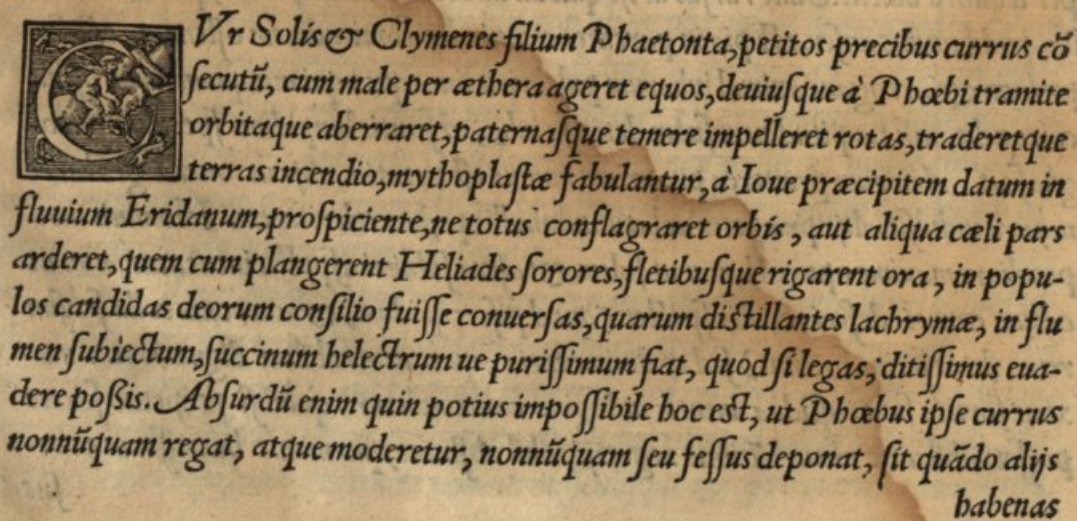 CVr Solis & Clymenes filium Phaetonta, petitos precibus currus cõ
ſecutũ, cum male per æthera ageret equos, deuiuſque à Phœbi tramite
orbitaque aberraret, paternaſque temere impelleret rotas, traderetque
terras incendio, mythoplaſtæ fabulantur, à Ioue præcipitem datum in
fluuium Eridanum, proſpiciente, ne totus conflagraret orbis, aut aliqua cæli pars
arderet, quem cum plangerent Heliades ſorores, fletibuſque rigarent ora, in popu-
los candidas deorum conſilio fuiſſe conuerſas, quarum diſtillantes lachrymæ, in flu
men ſubiectum, ſuccinum helectrum ue puriſſimum fiat, quod ſi legas, ditiſſimus eua-
dere poſsis. Abſurdũ enim quin potius impoſſibile hoc eſt, ut Phœbus ipſe currus
nonnũquam regat, atque moderetur, nonnũquam ſeu feſſus deponat, ſit quãdo alijs
habenas